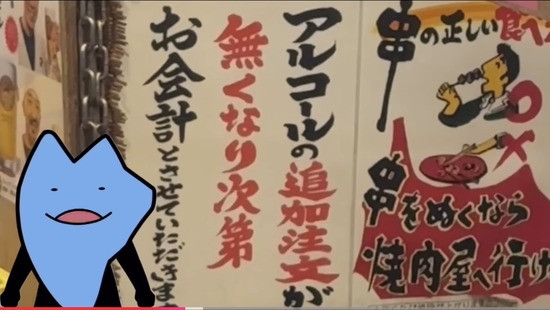 アルコールの追加注文が
無くなり次第
お会計とさせていただきま
串の正しい食べ
串をぬくなら
焼肉屋へ行け